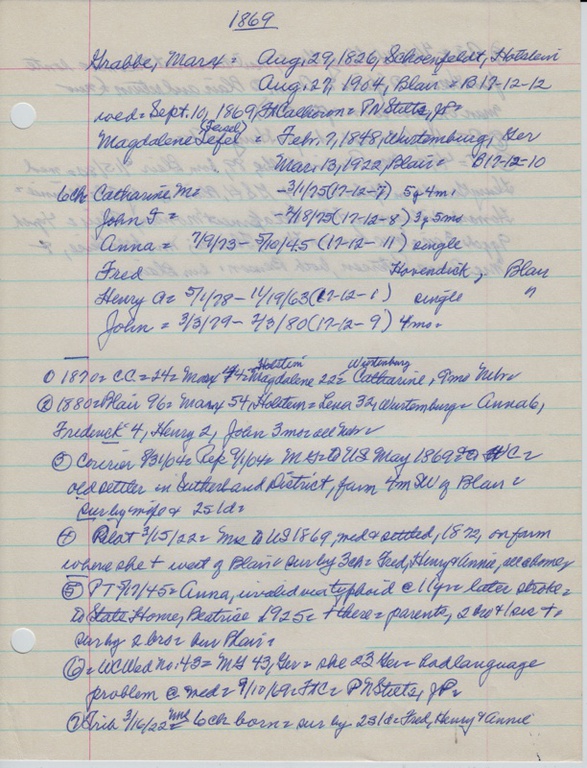 1869
Grabbe, Marx = Aug. 29, 1826, Schoenfeldt, Holstein
Aug. 27, 1904, Blair = B 17-12-12
wed = Sept. 10, 1869, Ft Calhoun = P N Stutts, JP =
(Feisel)
Magdalene Sefel = Febr. 7, 1848, Wurtemburg, Ger
Mar. 13, 1922, Blair = B17-12-10
6ch Catharine M = -3/1/75 (17-12-7) 5y 4m.
John F = -2/18/75 (17-12-8) 3y 5mo
Anna = 7/9/73 - 5/10/45 (17-12-11) single
Fred Hovendick, Blair
Henry A = 5/1/78 - 11/19/63 (17-12-1) single "
John = 3/3/79 - 7/3/80 (17-12-9) 4mo =
Holstein Wurtenburg
① 1870 = C.C. = 24 = Marx 44 = Magdalene 22 = Catharine, 9mo Nebr =
② 1880 = Blair 96 = Marx 54, Holstein = Lena 32, Wurtemburg = Anna 6,
Frederick 4, Henry 2, John 3 mo = all Nebr =
③ Courier 8/31/04 = Rep 9/1/04 = M = to US May 1869 = to WC =
old settler in Sutherland District, farm 4m SW of Blair =
sur by wife & 2s 1d =
④ Pilot 3/15/22 = Mrs to US 1869, wed & settled, 1872, on farm
where she + west of Blair = sur by 3ch = Fred, Henry & Annie, all @ home,
⑤ PT 5/17/45 = Anna, invalid via typhoid @ 11 yr = later stroke =
to State Home, Beatrice 1925 = + there = parents, 2 bro & 1 sis + =
sur by 2 bro = bur Blair =
⑥ = WC Wed No. 43 = M 43, Ger = she 23 Ger = had language
problem @ wed = 9/10/69 = FtC = P N Stutts, JP =
⑦ Trib 3/16/22 = Mrs 6ch born = sur by 2s 1d = Fred, Henry & Annie